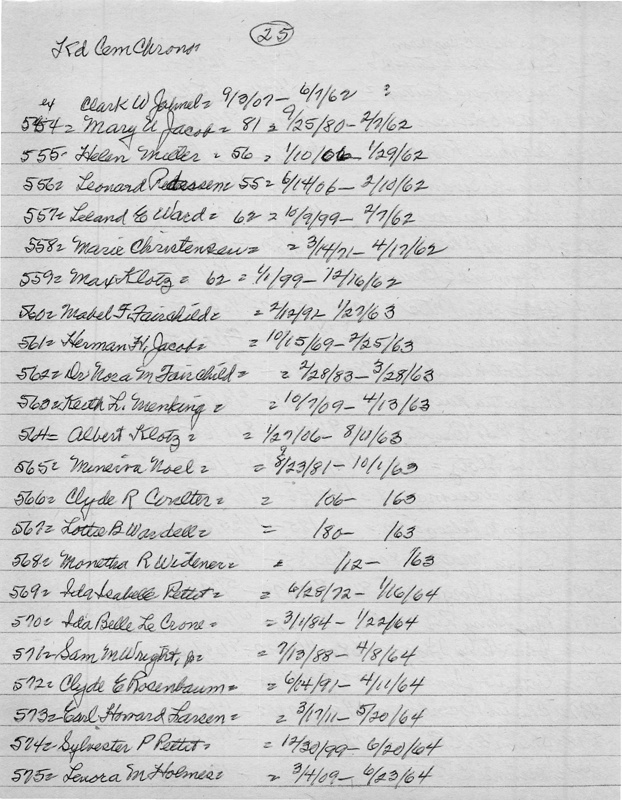 25
Kd Cem Chrono
ex Clark W = 9/3/07 - 6/7/62 ?
554 = Mary U Jacob = 81 = 9/25/80 - 2/7/62
555 - Helen Miller = 56 = 1/10/06 - 1/29/62
556 = Leonard Petersen 55 = 6/14/06 - 2/10/62
557 = Leland E Ward = 62 = 10/9/99 - 2/7/62
558 = Marie Christensen = = 3/14/71 - 4/17/62
559 = Max Klotz = 62 = 1/1/99 - 12/16/62
560 = Mabel F. Fairchild = = 2/12/92 1/27/63
561 = Herman H. Jacob = = 10/15/69 - 2/25/63
562 = Dr Nora M Fairchild = = 2/28/83 - 3/28/63
563 = Keith L. Menking = = 10/7/09 - 4/13/63
564 = Albert Klotz = = 1/27/06 - 8/11/63
565 = Minerva Noel = = 9/23/81 - 10/1/63
566 = Clyde R Coulter = = /06 - /63
567 = Lottie B Wardell = = /80 - /63
568 = Monettia R Widener = = /12 - /63
569 = Ida Isabelle Pettit = = 6/28/72 - 1/16/64
570 = Ida Belle Le Crone = = 3/1/84 - 1/22/64
571 = Sam M Wright, Jr = = 7/13/88 - 4/8/64
572 = Clyde E Rosenbaum = = 6/14/91 - 4/11/64
573 = Earl Howard Larsen = = 3/17/11 - 5/20/64
574 = Sylvester P Pettit = = 12/30/99 - 6/20/64
575 = Lenora M Holmes = = 3/4/09 - 6/23/64